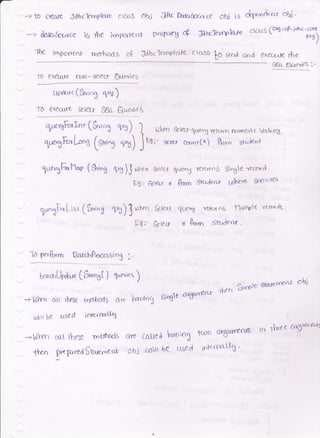 → to create JdbcTemplate class obj Jdbc DataSource obj is dependent obj.
→ dataSource is the important property of JdbcTemplate class
The important methods of JdbcTemplate class to send and execute the SQL Queries :-
To execute non-select Queries
update(String qry)
To execute select SQL Queries
queryForInt(String qry)
queryForLong(String qry)
When select query return numeric values
Eg:- select count(*) from student
queryForMap(String qry) When select query returns single record.
Eg: Select * from student where sno=101
queryForList(String qry) When Select query returns Multiple records
Eg:- Select * from Student.
To perform BatchProcessing :-
batchUpdate(String[] queries)
→ When all these methods are having single argument then Simple statement obj
will be used internally.
→ When all these methods are called having two arguments or three arguments
then preparedStatement obj will be used internally.